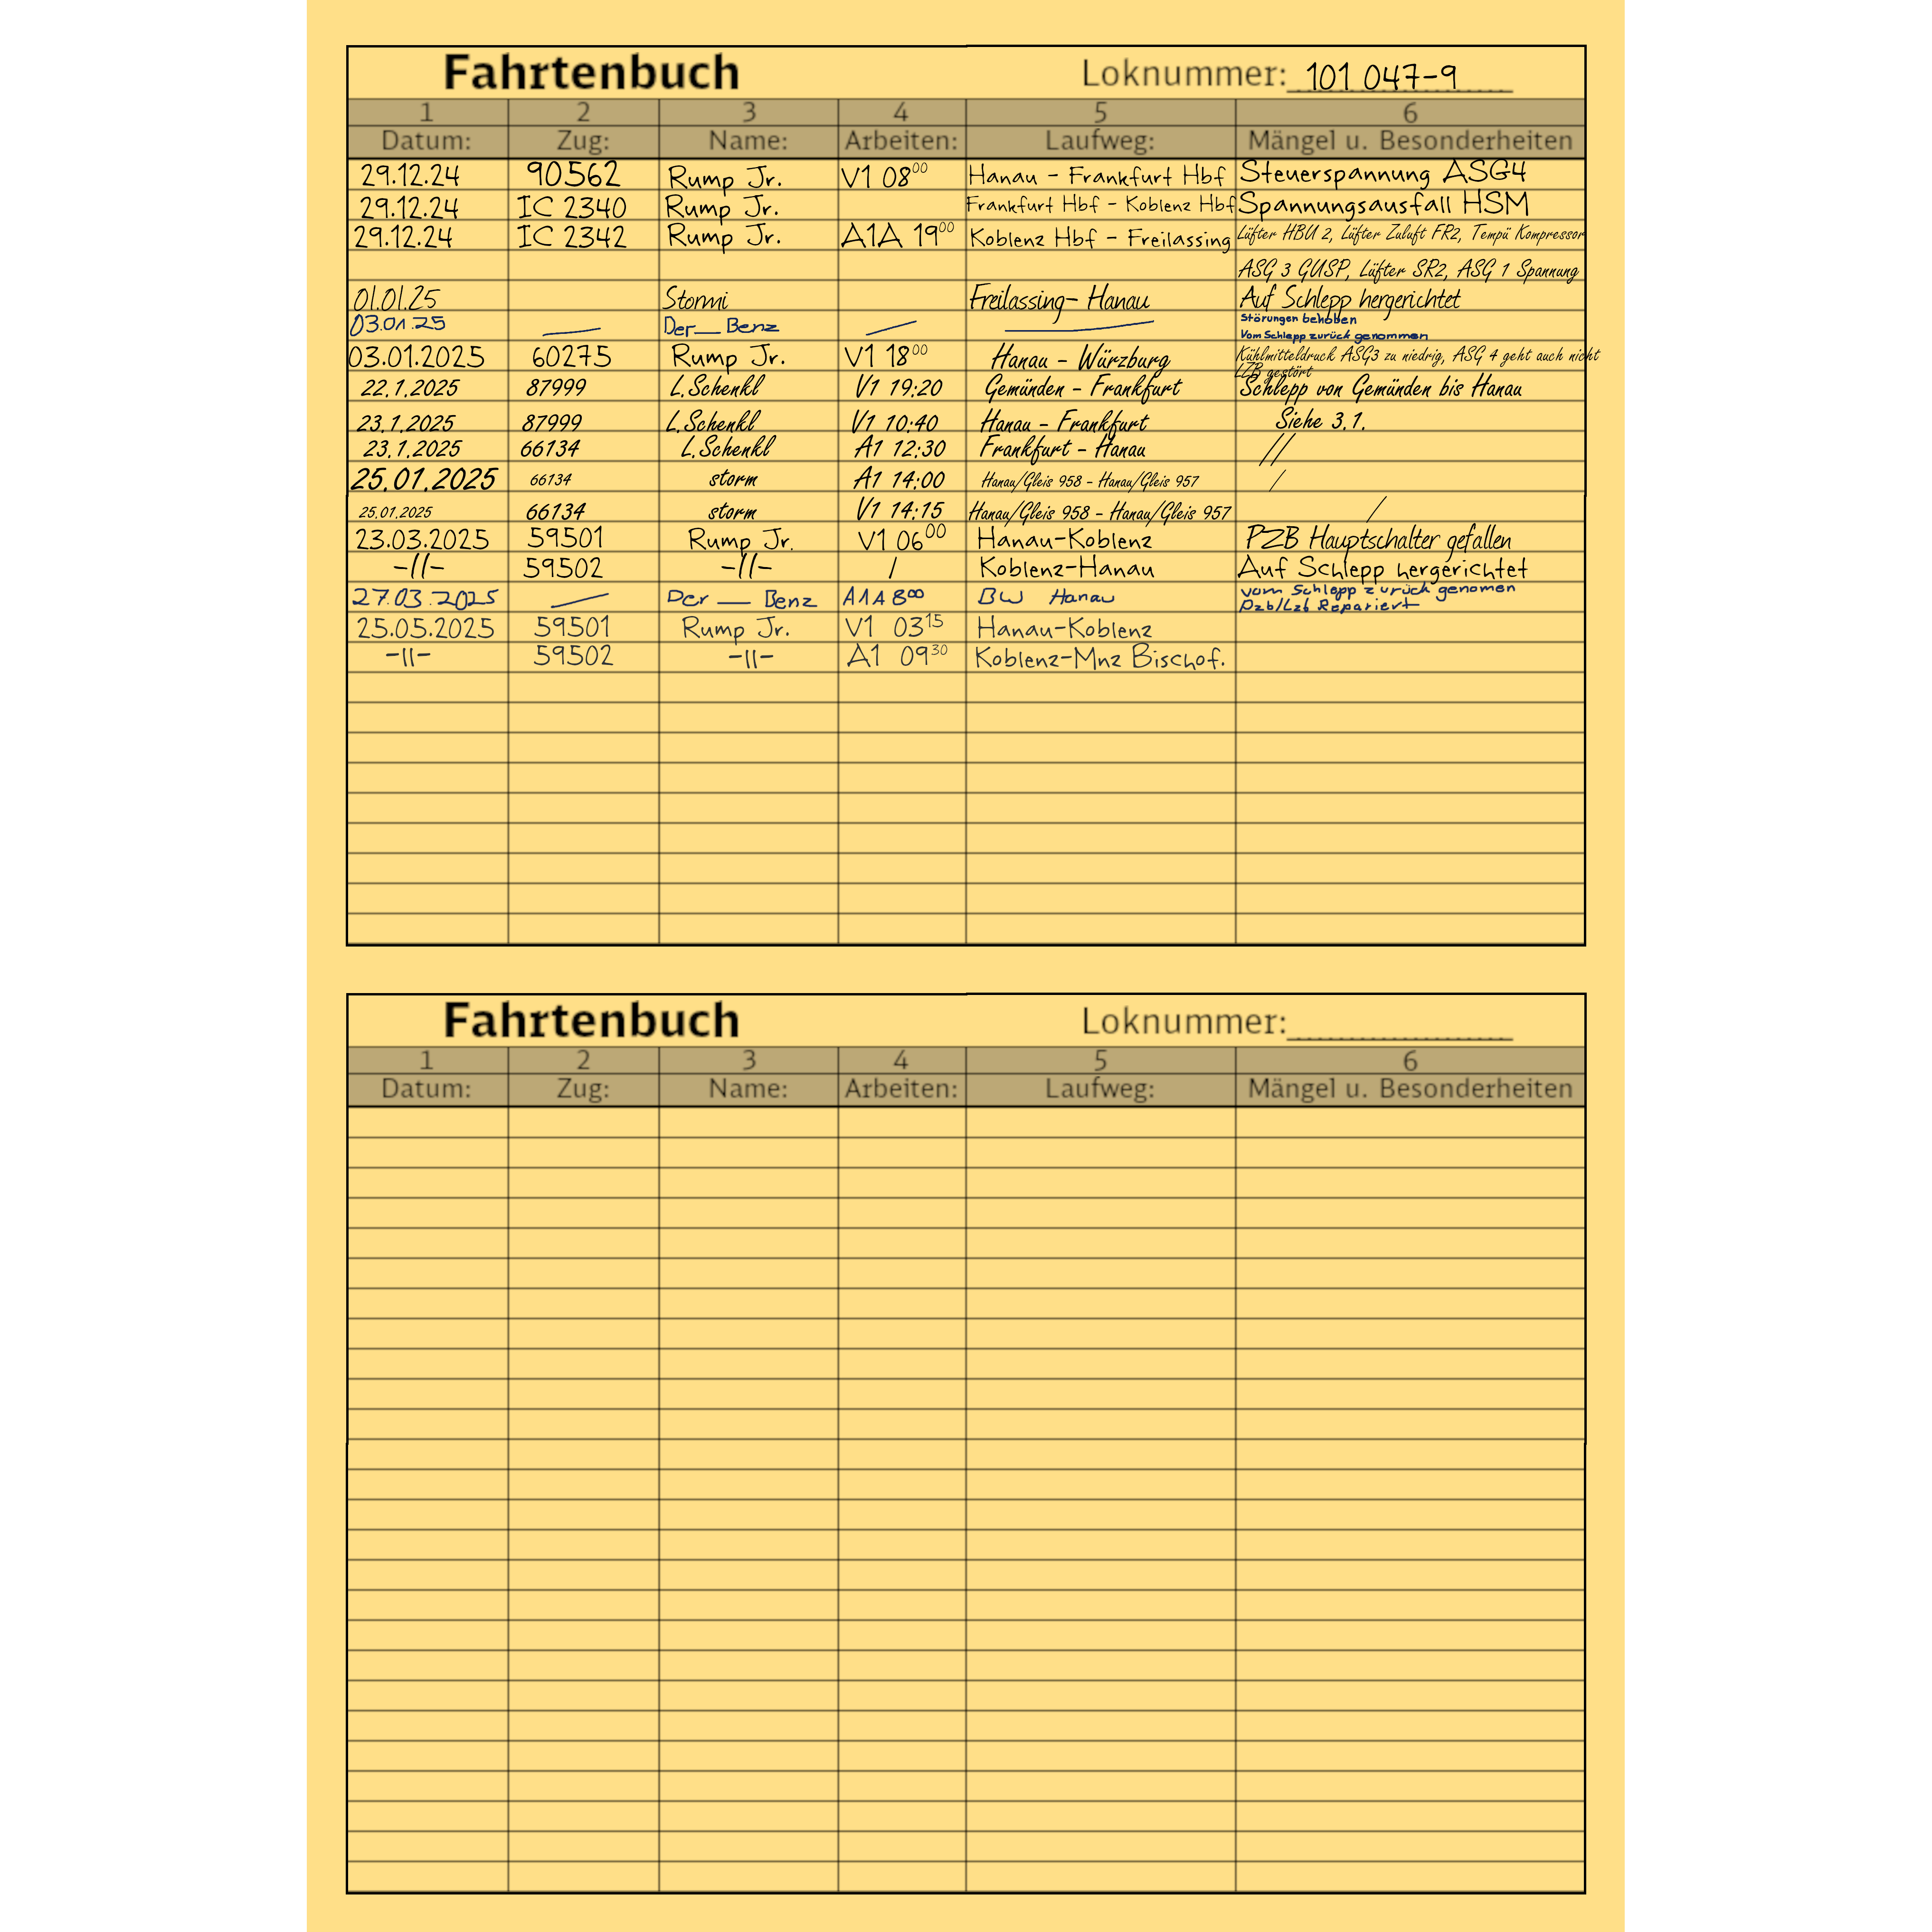 Fahrtenbuch Loknummer: 101 047-9
1 2 3 4 5 6
Datum: Zug: Name: Arbeiten: Laufweg: Mängel u. Besonderheiten
29.12.24 90562 Rump Jr. V1 08⁰⁰ Hanau - Frankfurt Hbf Steuerspannung ASG4
29.12.24 IC 2340 Rump Jr. Frankfurt Hbf - Koblenz Hbf Spannungsausfall HSM
29.12.24 IC 2342 Rump Jr. A1A 19⁰⁰ Koblenz Hbf - Freilassing Lüfter HBU 2, Lüfter Zuluft FR2, Tempü Kompressor
ASG 3 GUSP, Lüfter SR2, ASG 1 Spannung
01.01.25 Stormi Freilassing- Hanau Auf Schlepp hergerichtet
03.01.25 — Der__Benz — — Störungen behoben
Vom Schlepp zurück genommen
03.01.2025 60275 Rump Jr. V1 18⁰⁰ Hanau - Würzburg Kühlmitteldruck ASG3 zu niedrig, ASG 4 geht auch nicht
LZB gestört
22.1.2025 87999 L.Schenkl V1 19:20 Gemünden - Frankfurt Schlepp von Gemünden bis Hanau
23.1.2025 87999 L.Schenkl V1 10:40 Hanau - Frankfurt Siehe 3.1.
23.1.2025 66134 L.Schenkl A1 12:30 Frankfurt - Hanau //
25.01.2025 66134 storm A1 14:00 Hanau/Gleis 958 - Hanau/Gleis 957 /
25.01.2025 66134 storm V1 14:15 Hanau/Gleis 958 - Hanau/Gleis 957 /
23.03.2025 59501 Rump Jr. V1 06⁰⁰ Hanau-Koblenz PZB Hauptschalter gefallen
-//- 59502 -//- / Koblenz-Hanau Auf Schlepp hergerichtet
27.03.2025 — Der __ Benz A1A 8⁰⁰ BW Hanau vom Schlepp zurück genomen
Pzb/Lzb Repariert
25.05.2025 59501 Rump Jr. V1 03¹⁵ Hanau-Koblenz
-//- 59502 -//- A1 09³⁰ Koblenz-Mnz Bischof.
Fahrtenbuch Loknummer:
1 2 3 4 5 6
Datum: Zug: Name: Arbeiten: Laufweg: Mängel u. Besonderheiten